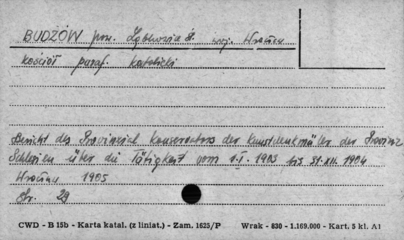 BUDZÓW pow. Ząbkowice Śl. woj. Wrocław
kościół paraf. katolicki
Bericht des Provinzial Konservators der Kunstdenkmäler der Provinz
Schlesien über die Tätigkeit vom 1.I. 1903 bis 31.XII. 1904
Wrocław 1905
Str. 29
CWD - B 15b - Karta katal. (z liniat.) - Zam. 1625/P Wrak - 630 - 1.169.000 - Kart. 5 kl. A1